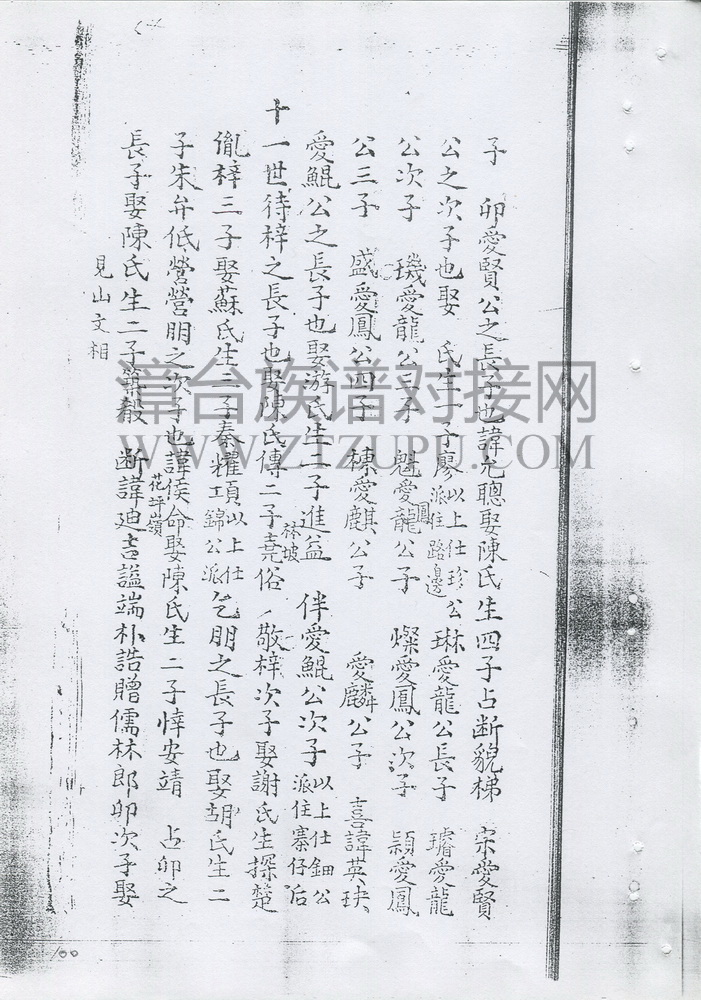 子 卯愛賢公之長子也諱允聰娶陳氏生四子占断貌梯 宗愛賢
公之次子也娶 氏生一子廖以上仕珍公派住路邊 琳愛龍公長子 璿愛龍
公次子 璣愛龍公三子 魁愛龍公子 燦愛鳳公次子 穎愛鳳
公三子 盛愛鳳公四子 棟愛麒公子 愛麟公子 喜諱英玦
愛鯤公之長子也娶游氏生二子進益 伴愛鯤公次子以上仕鈿公派住寨仔后
十一世待梓之長子也娶陳氏傳二子堯俗 敬梓次子娶謝氏生探楚
胤梓三子娶蘇氏生二子秦耀項以上仕錦公派 乞朋之長子也娶胡氏生二
子朱弁低營營朋之次子也諱侯命娶陳氏生二子悻安靖 占卯之
花坪嶺
長子娶陳氏生二子築殽 断諱廸吉謚端朴誥贈儒林郎卯次子娶
見山文相
100
漳台族谱对接网
WWW.ZTZUPU.COM